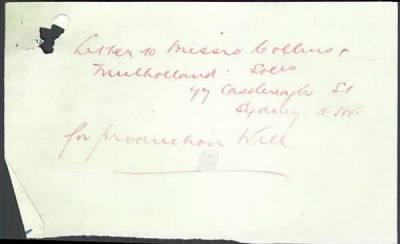 Letter to Messrs Collins &
Mulholland. Solrs
77 Castlereagh St
Sydney. N.SW.
for production Will